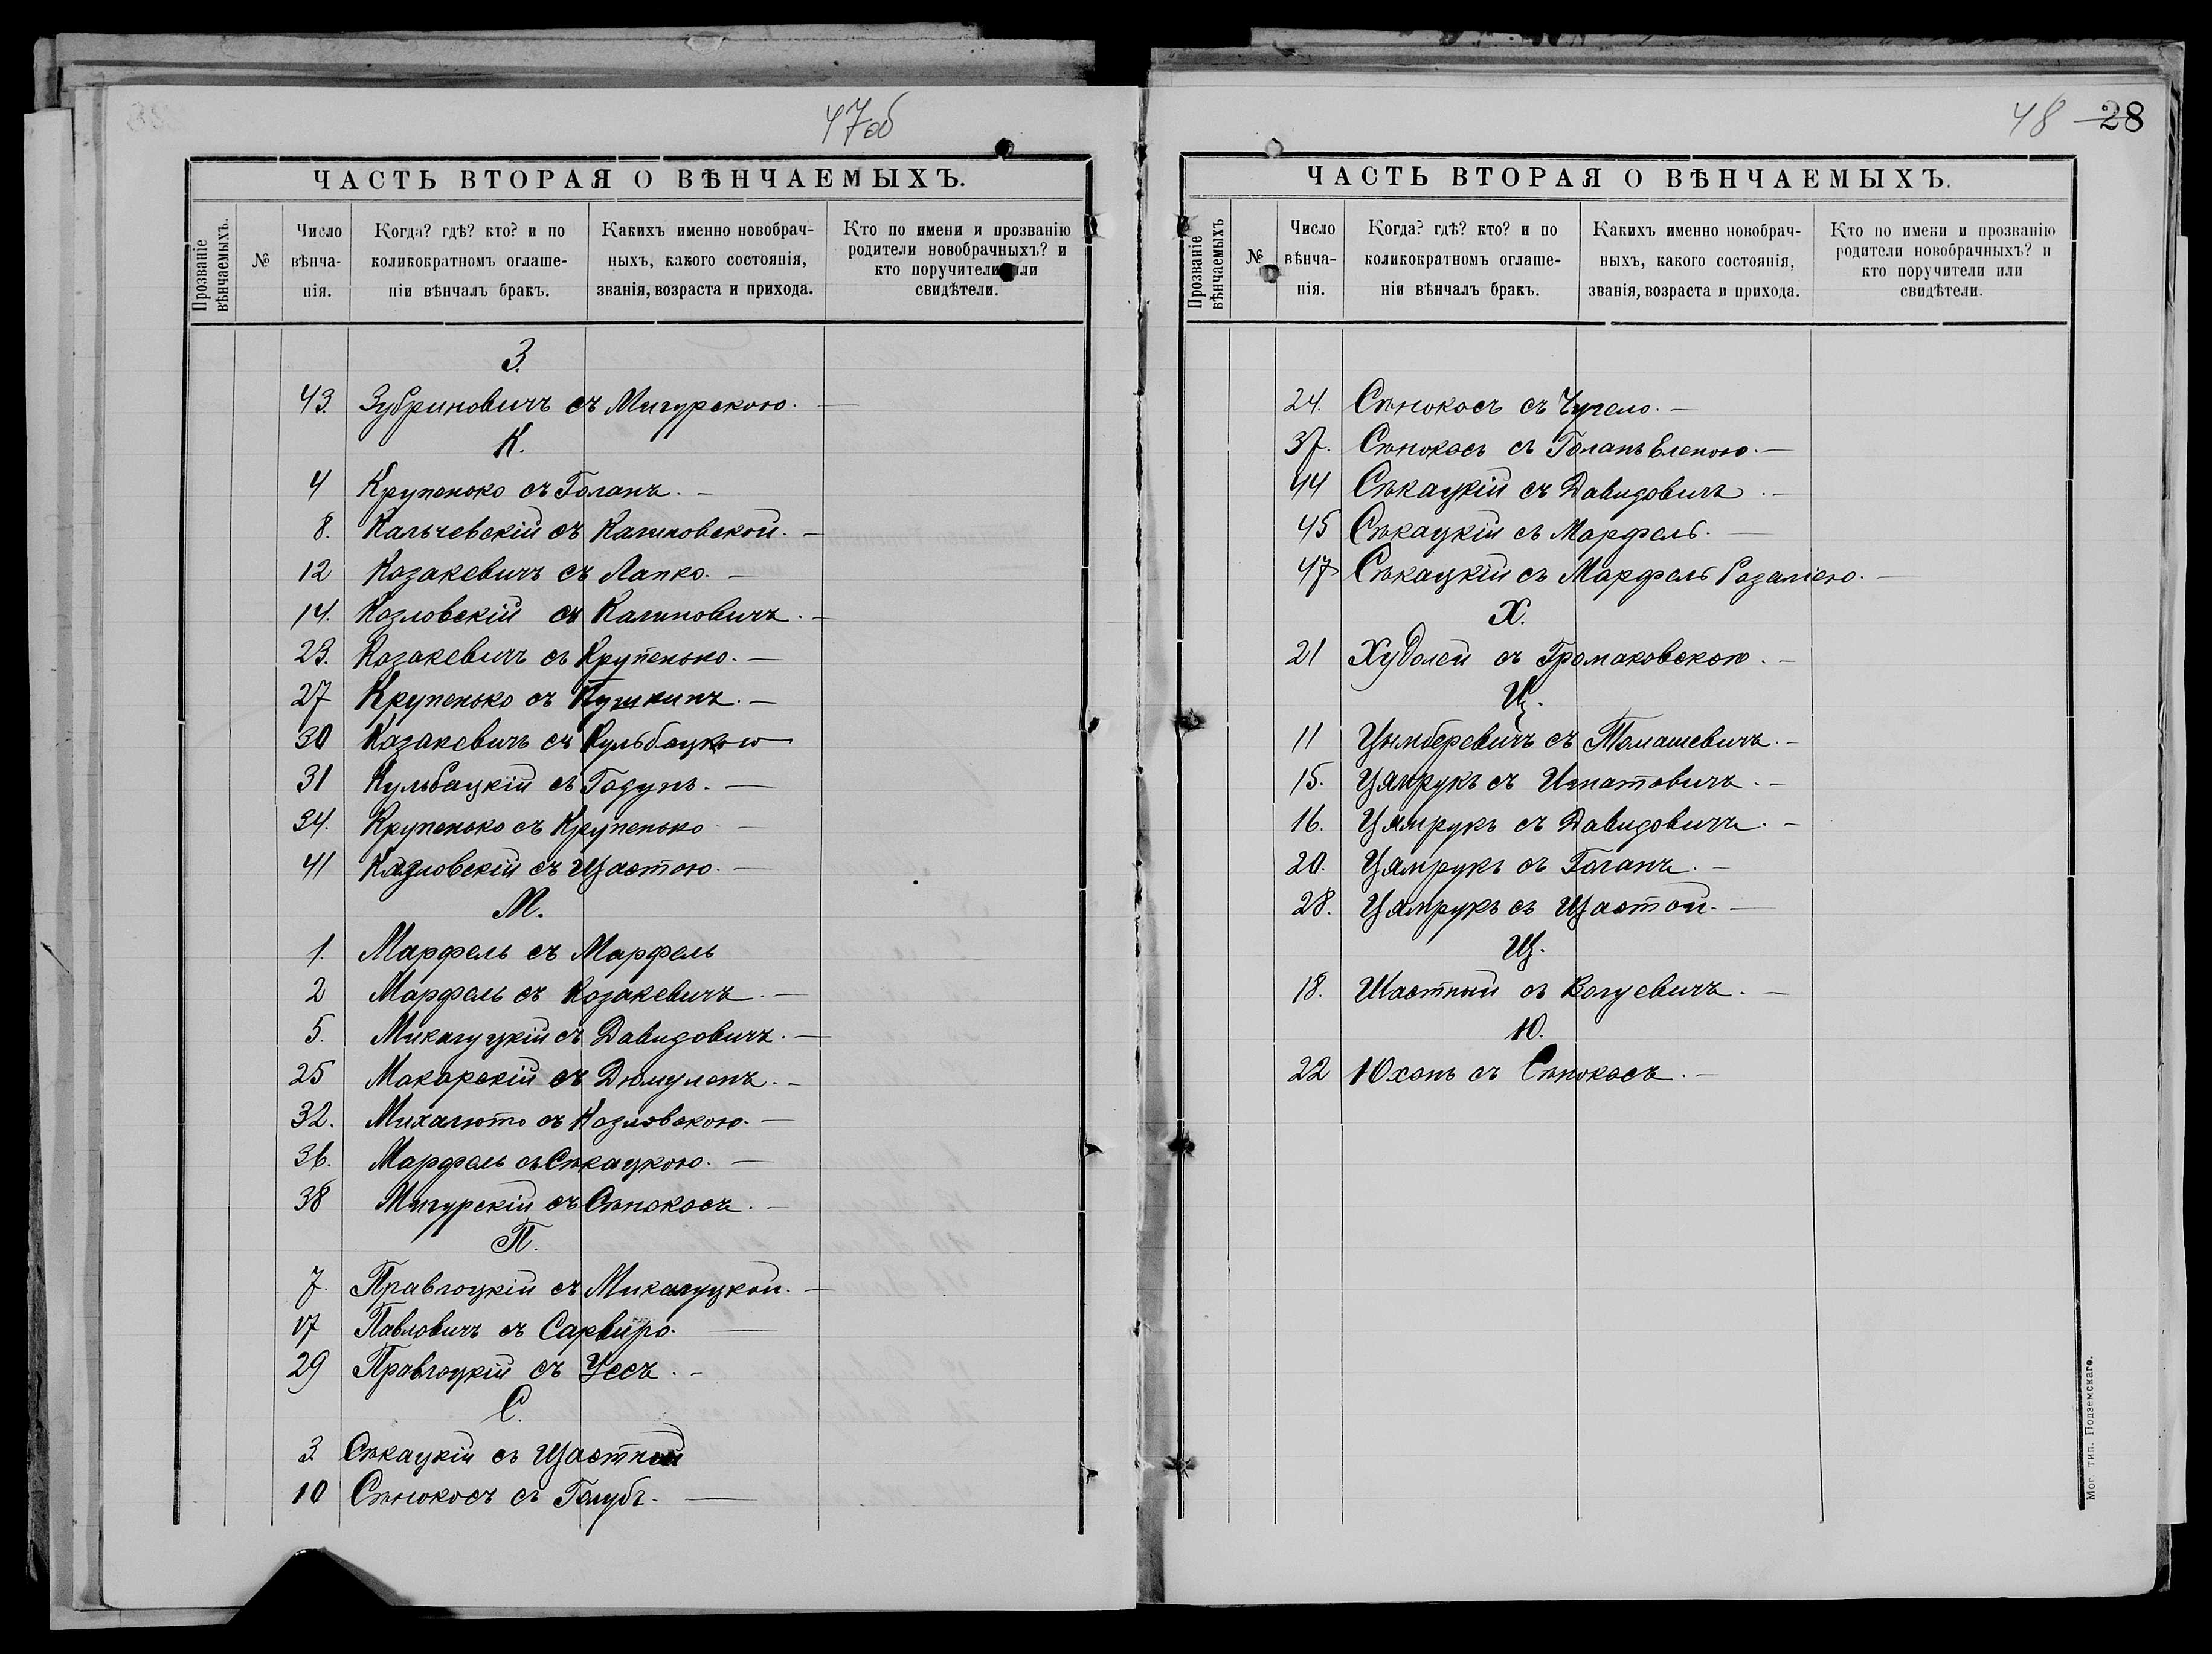 47об
ЧАСТЬ ВТОРАЯ О ВѢНЧАЕМЫХЪ.
Прозваніе вѣнчаемыхъ.
№
Число вѣнча-нія.
Когда? гдѣ? кто? и по коликократномъ оглаше-ніи вѣнчалъ бракъ.
Какихъ именно новобрач-ныхъ, какого состоянія, званія, возраста и прихода.
Кто по имени и прозванію родители новобрачныхъ? и кто поручители или свидѣтели.
З.
43. Зубриновичъ съ Мигурскою. —
К.
4 Крупенько съ Голанъ. —
8. Кальчевскій съ Калиновской. —
12 Козакевичъ съ Лапко. —
14. Козловскій съ Калиновичъ. —
23. Козакевичъ съ Крупенько. —
27 Крупенько съ Пушкинъ. —
30 Казакевичъ съ Кульбацкою
31 Кульбацкій съ Годунъ. —
34. Крупенько съ Крупенько —
41 Козловскій съ Щастою. —
М.
1. Марфель съ Марфель
2 Марфель съ Козакевичъ. —
5. Микагуцкій съ Давидовичъ. —
25 Макарскій съ Дюмуленъ. —
32. Михалюто съ Козловскою. —
36. Марфель съ Сѣкацкою. —
38 Мигурскій съ Сѣнокосъ. —
П.
7. Правлоцкій съ Микагуцкой. —
17 Павловичъ съ Сарвиро. —
29 Правлоцкій съ Уссъ. —
С.
3. Сѣкацкій съ Щастной
10 Сѣнокосъ съ Голубъ. —
48 28
ЧАСТЬ ВТОРАЯ О ВѢНЧАЕМЫХЪ.
Прозваніе вѣнчаемыхъ
№
Число вѣнча-нія.
Когда? гдѣ? кто? и по коликократномъ оглаше-ніи вѣнчалъ бракъ.
Какихъ именно новобрач-ныхъ, какого состоянія, званія, возраста и прихода.
Кто по имени и прозванію родители новобрачныхъ? и кто поручители или свидѣтели.
24. Сѣнокосъ съ Чучело. —
37. Сѣнокосъ съ Голанъ Еленою. —
44 Сѣкацкій съ Давидовичъ. —
45 Сѣкацкій съ Марфель. —
47 Сѣкацкій съ Марфель Розаліею. —
Х.
21 Худолей съ Громаковскою. —
Ц.
11 Цымберевичъ съ Томашевичъ. —
15. Цямрукъ съ Игнатовичъ. —
16. Цямрукъ съ Давидовичъ. —
20. Цямрукъ съ Голанъ. —
28. Цямрукъ съ Щастой. —
Щ.
18. Щастный съ Волуевичъ. —
Ю.
22 Юхонъ съ Сѣнокосъ. —
Мог. тип. Подземскаго.